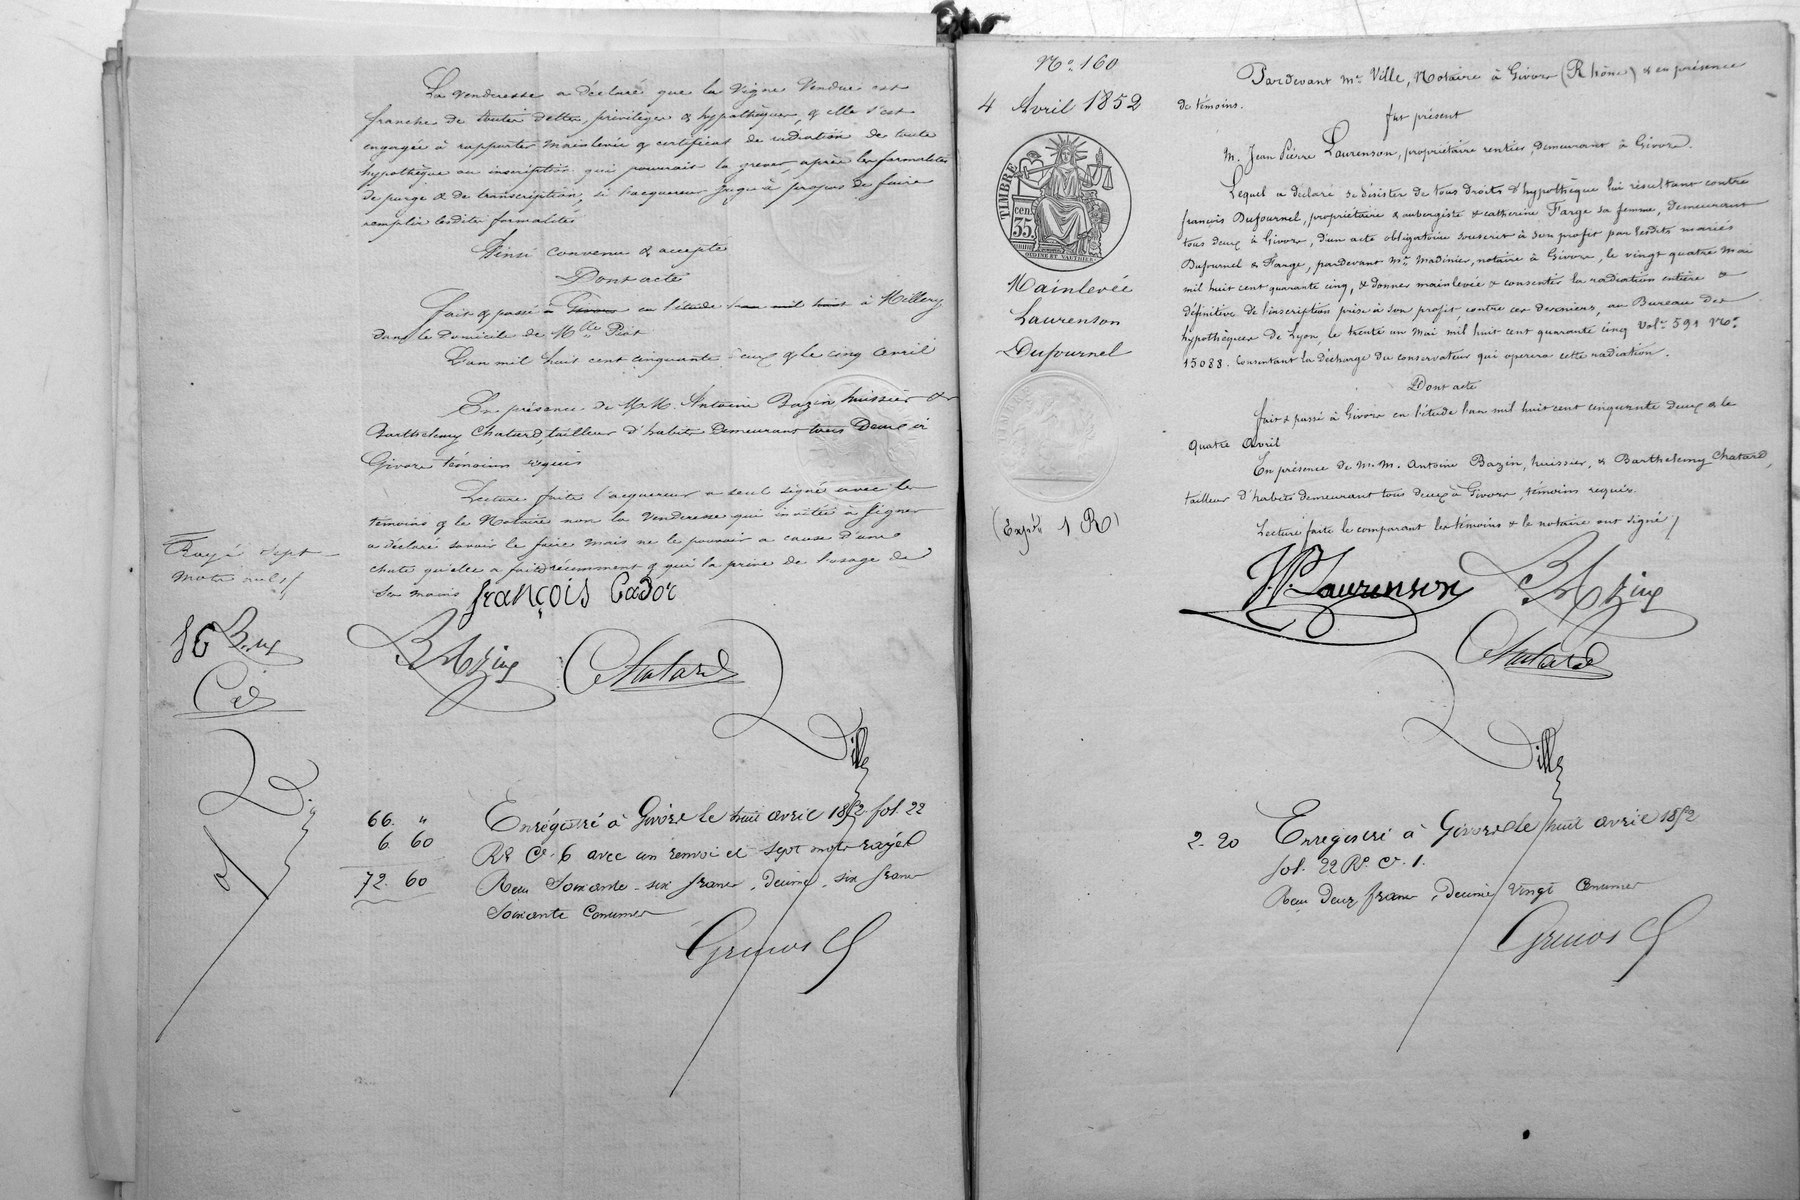 La venderesse a déclaré que la vigne vendue est
franche de toutes dettes, privilèges & hypothèques, & elle s'est
engagée à rapporter mainlevée & certificat de radiation de toute
hypothèque ou inscription qui pourrait la grever, après les formalités
de purge & de transcription, si l'acquereur juge à propos de faire
remplir lesdites formalités
Ainsi convenu & accepté
Dont acte
fait & passé à Givors en l'étude l'an mil huit à Millery
dans le domicile de Mlle Piot
L'an mil huit cent cinquante deux & le cinq avril
En présence de M.M. Antoine Bazin huissier &
Barthelemy Chatard, tailleur d'habits demeurant tous deux à
Givors témoins requis
Lecture faite l'acquereur a seul signé avec les
témoins & le Notaire non la venderesse qui invitée à signer
a déclaré savoir le faire mais ne le pouvoir a cause d'une
chute qu'elle a faite récemment & qui la prive de l'usage de
ses mains
françois Cador
Rayé sept
mots nuls
BAzin
Chatard
Ville
66. "
6 60
72. 60
Enregistré à Givors le huit avril 1852 fol. 22
Ro Ce. 6 avec un renvoi et sept mots rayés
Reçu Soixante-six francs, decime, six francs
Soixante Centimes
No. 160
4 Avril 1852
TIMBRE
cen.
35.
OUDINÉ ET VAUTHIER
Mainlevée
Laurenson
Dufournel
(Expén 1 R)
Pardevant me Ville, Notaire à Givors (Rhône) & en présence
de témoins.
fut présent
M. Jean Pierre Laurenson, propriétaire rentier, demeurant à Givors.
Lequel a déclaré se désister de tous droits d'hypothèque lui résultant contre
françois Dufournel, propriétaire & aubergiste & catherine Farge sa femme, demeurant
tous deux à Givors, d'un acte obligatoire souscrit à son profit par lesdits mariés
Dufournel & Farge, pardevant me Madinier, notaire à Givors, le vingt quatre mai
mil huit cent quarante cinq, & donner mainlevée & consentir la radiation entière &
définitive de l'inscription prise à son profit, contre ces derniers, au Bureau des
hypothèques de Lyon, le trente un Mai mil huit cent quarante cinq Vol. 591 No.
15088. Consentant la décharge du conservateur qui opérera cette radiation.
Dont acte
fait & passé à Givors en l'étude l'an mil huit cent cinquante deux & le
quatre Avril
En présence de M.M. Antoine Bazin, huissier, & Barthelemy Chatard,
tailleur d'habits demeurant tous deux à Givors, témoins requis.
Lecture faite le comparant les témoins & le notaire ont signé
J.P. Laurenson
BAzin
Chatard
Ville
2. 20
Enregistré à Givors le huit avril 1852
fol. 22 Ro. Ce. 1.
Reçu Deux francs, decime, Vingt Centimes